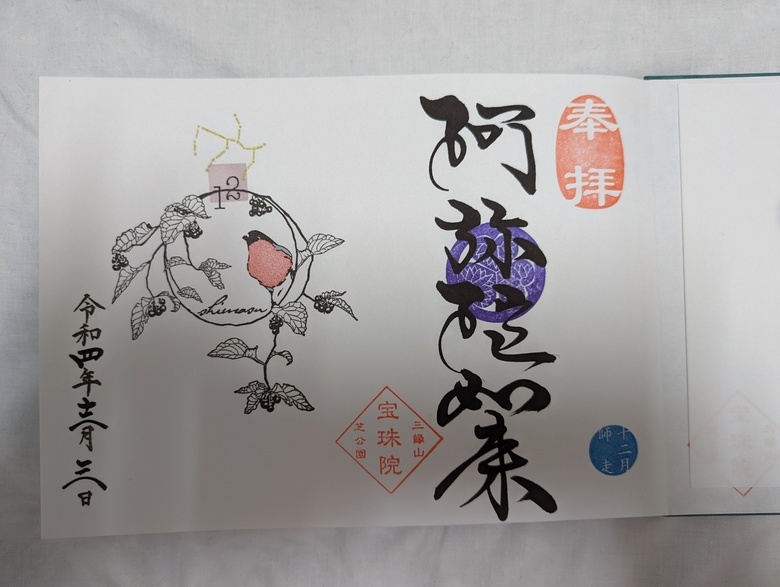 奉拝
阿弥陀如来
十二月
師走
三縁山
宝珠院
芝公園
12
shiwasu
令和四年十二月三日